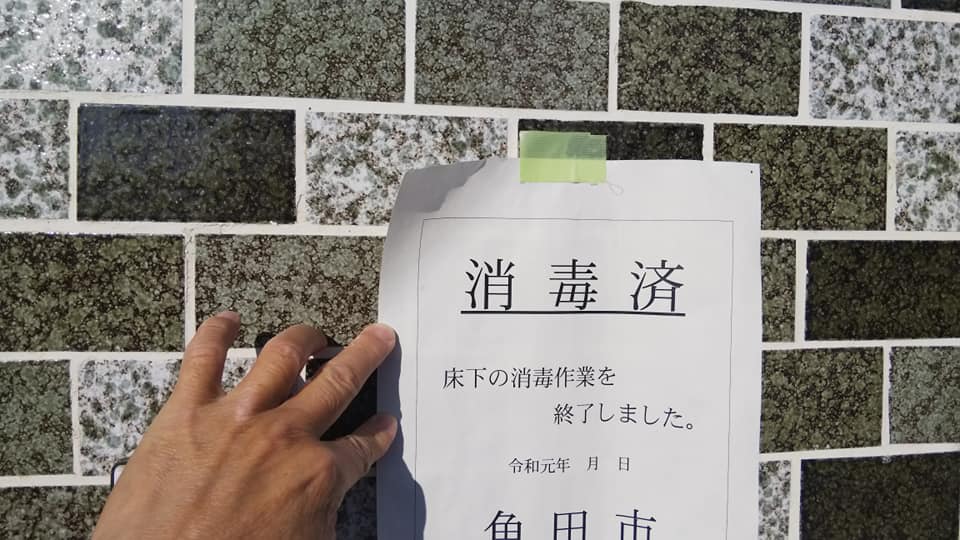 消毒済
床下の消毒作業を
終了しました。
令和元年 月 日
角田市